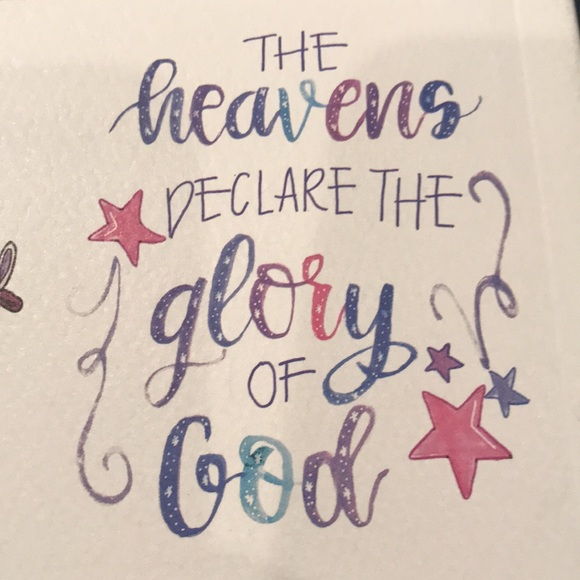 THE
heavens
DECLARE THE
glory
OF
God